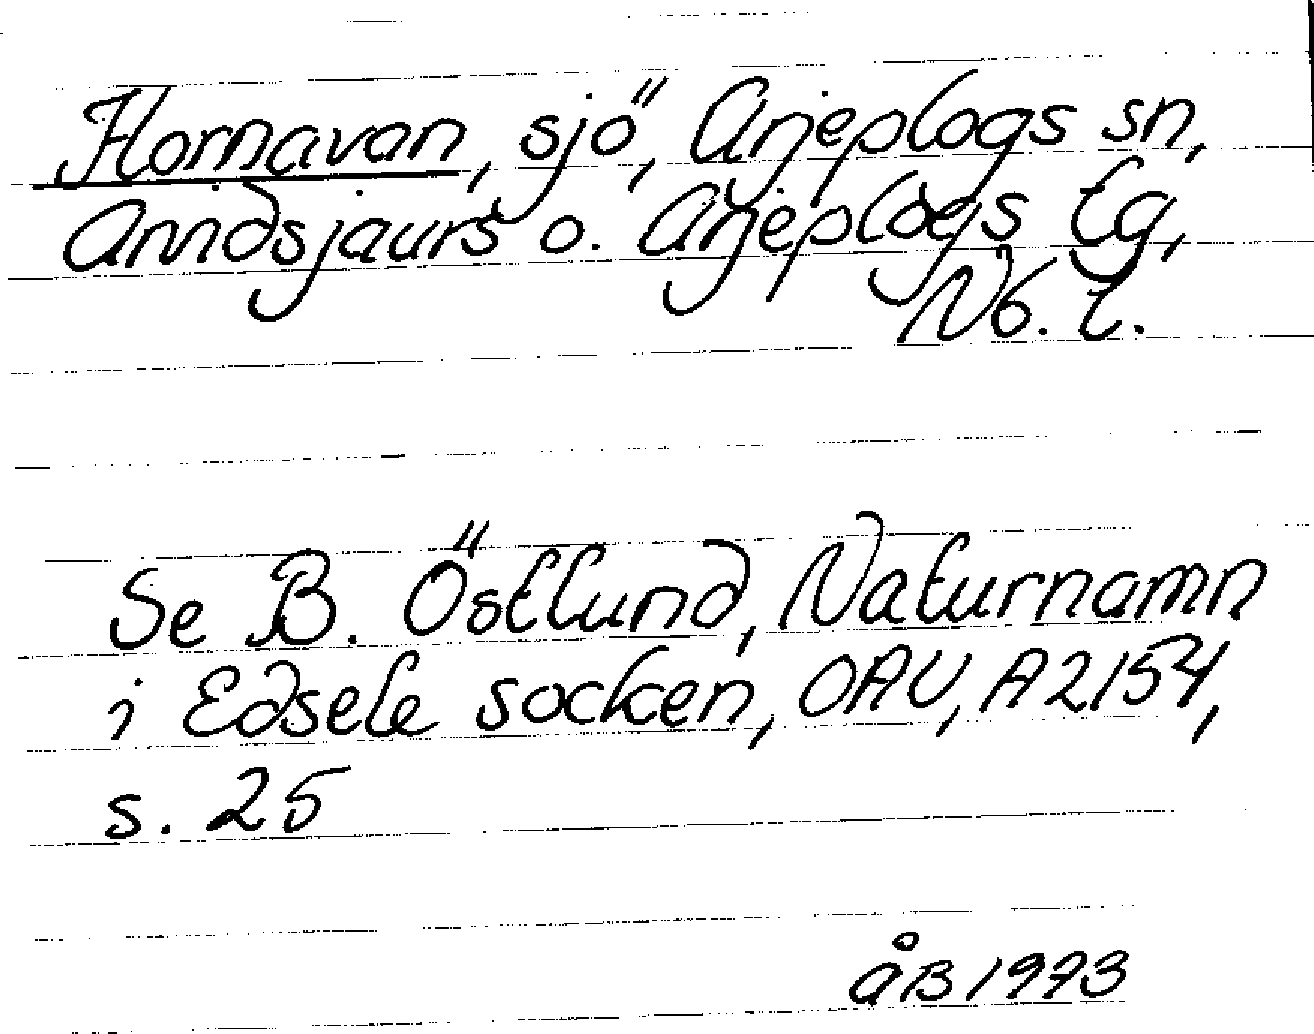 Hornavan, sjö, Arjeplogs sn,
Arvidsjaurs o. Arjeplogs lg,
Nb. l.
Se B. Östlund, Naturnamn
i Edsele socken, OAU, A2154,
s. 25
åB 1973